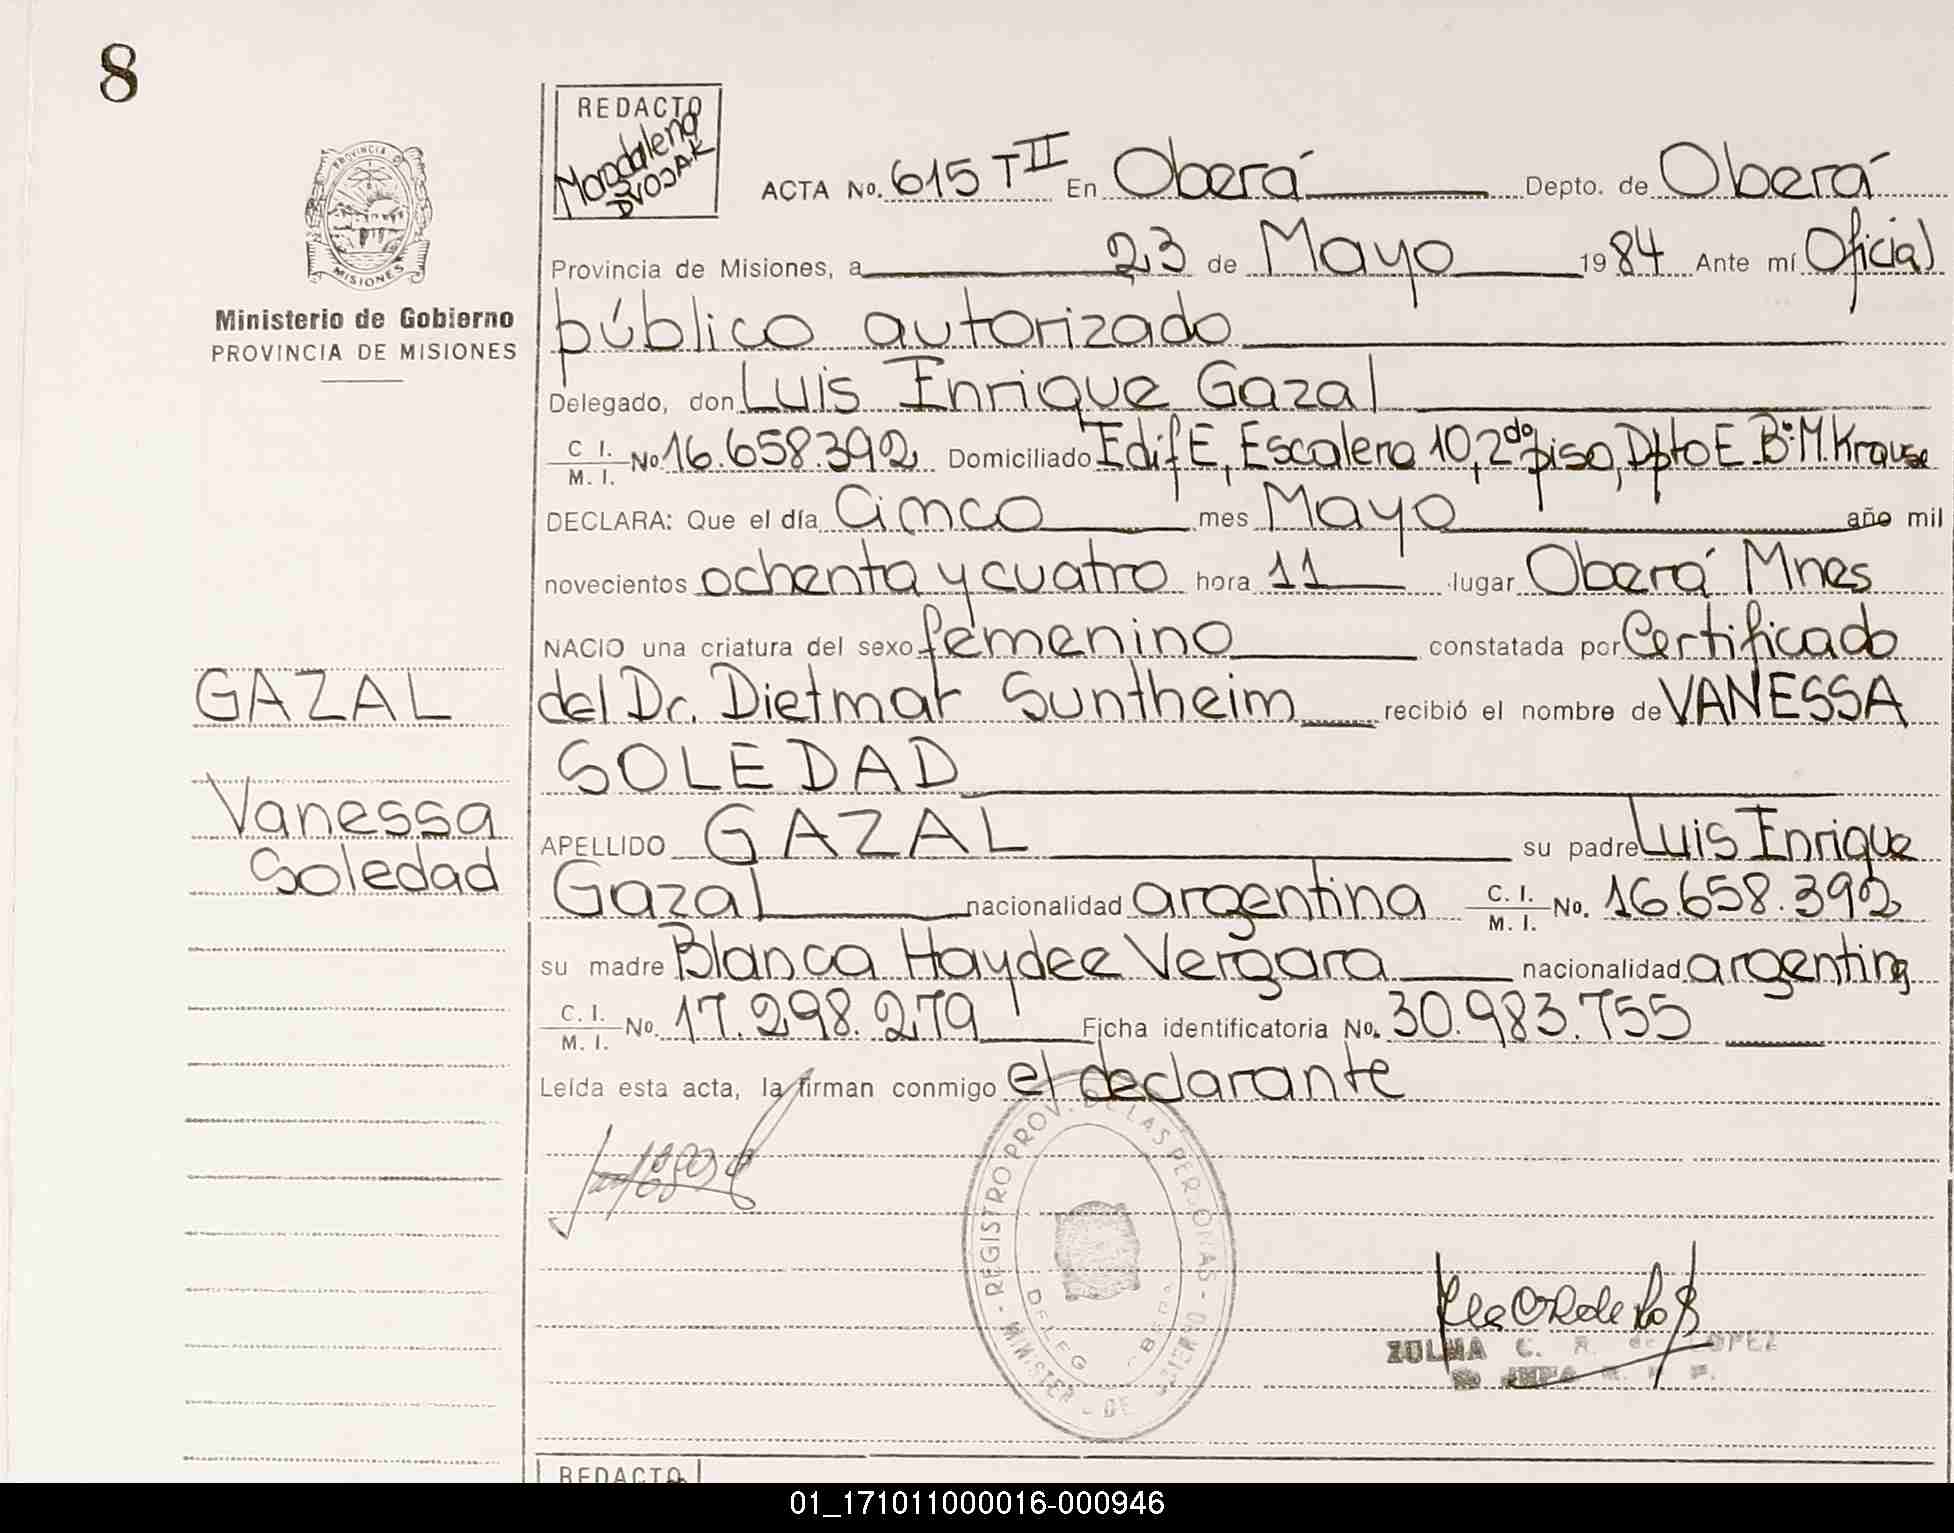 8
REDACTO
Magdalena
DVOJAK
PROVINCIA DE
MISIONES
Ministerio de Gobierno
PROVINCIA DE MISIONES
ACTA No. 615 T II En Oberá Depto. de Oberá
Provincia de Misiones, a 23 de Mayo 1984 Ante mí Oficial
público autorizado
Delegado, don Luis Enrique Gazal
C. I. / M. I. No. 16.658.392 Domiciliado Edif E, Escalera 10, 2do piso, Dpto E. Bº M. Krause
DECLARA: Que el día Cinco mes Mayo año mil
novecientos ochenta y cuatro hora 11 lugar Oberá Mnes
NACIO una criatura del sexo femenino constatada por Certificado
del Dr. Dietmar Suntheim recibió el nombre de VANESSA
SOLEDAD
APELLIDO GAZAL su padre Luis Enrique
Gazal nacionalidad argentina C. I. / M. I. No. 16.658.392
su madre Blanca Haydee Vergara nacionalidad argentina
C. I. / M. I. No. 17.298.279 Ficha identificatoria No. 30.983.755
Leída esta acta, la firman conmigo el declarante
GAZAL
Vanessa
Soledad
REGISTRO PROV. DE LAS PERSONAS
ZULMA C. R. de LOPEZ
REDACTO
01_171011000016-000946